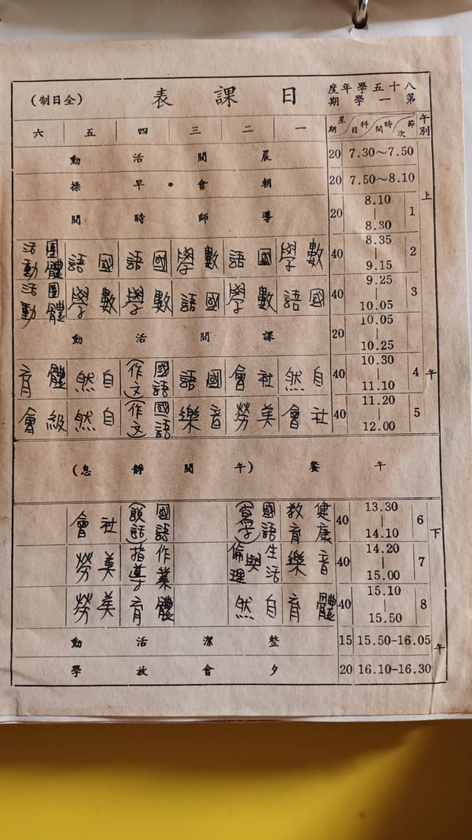 八十五學年度第一學期 日課表 (全日制)
午別 節次 時間 科目 星期 一 二 三 四 五 六
上午
7.30~7.50 20 晨間活動
7.50~8.10 20 朝會・早操
1 8.10|8.30 20 導師時間
2 8.35|9.15 40 數學 國語 數學 國語 國語 團體活動
3 9.25|10.05 40 國語 數學 國語 數學 數學 團體活動
10.05|10.25 20 課間活動
4 10.30|11.10 40 自然 社會 國語 國語(作文) 自然 體育
5 11.20|12.00 40 社會 美勞 音樂 國語(作文) 自然 級會
午餐(午間靜息)
下午
6 13.30|14.10 40 健康教育 國語(寫字) 國語(說話) 社會
7 14.20|15.00 40 音樂 生活與倫理 作業指導 美勞
8 15.10|15.50 40 體育 自然 體育 美勞
15.50-16.05 15 整潔活動
16.10-16.30 20 夕會放學